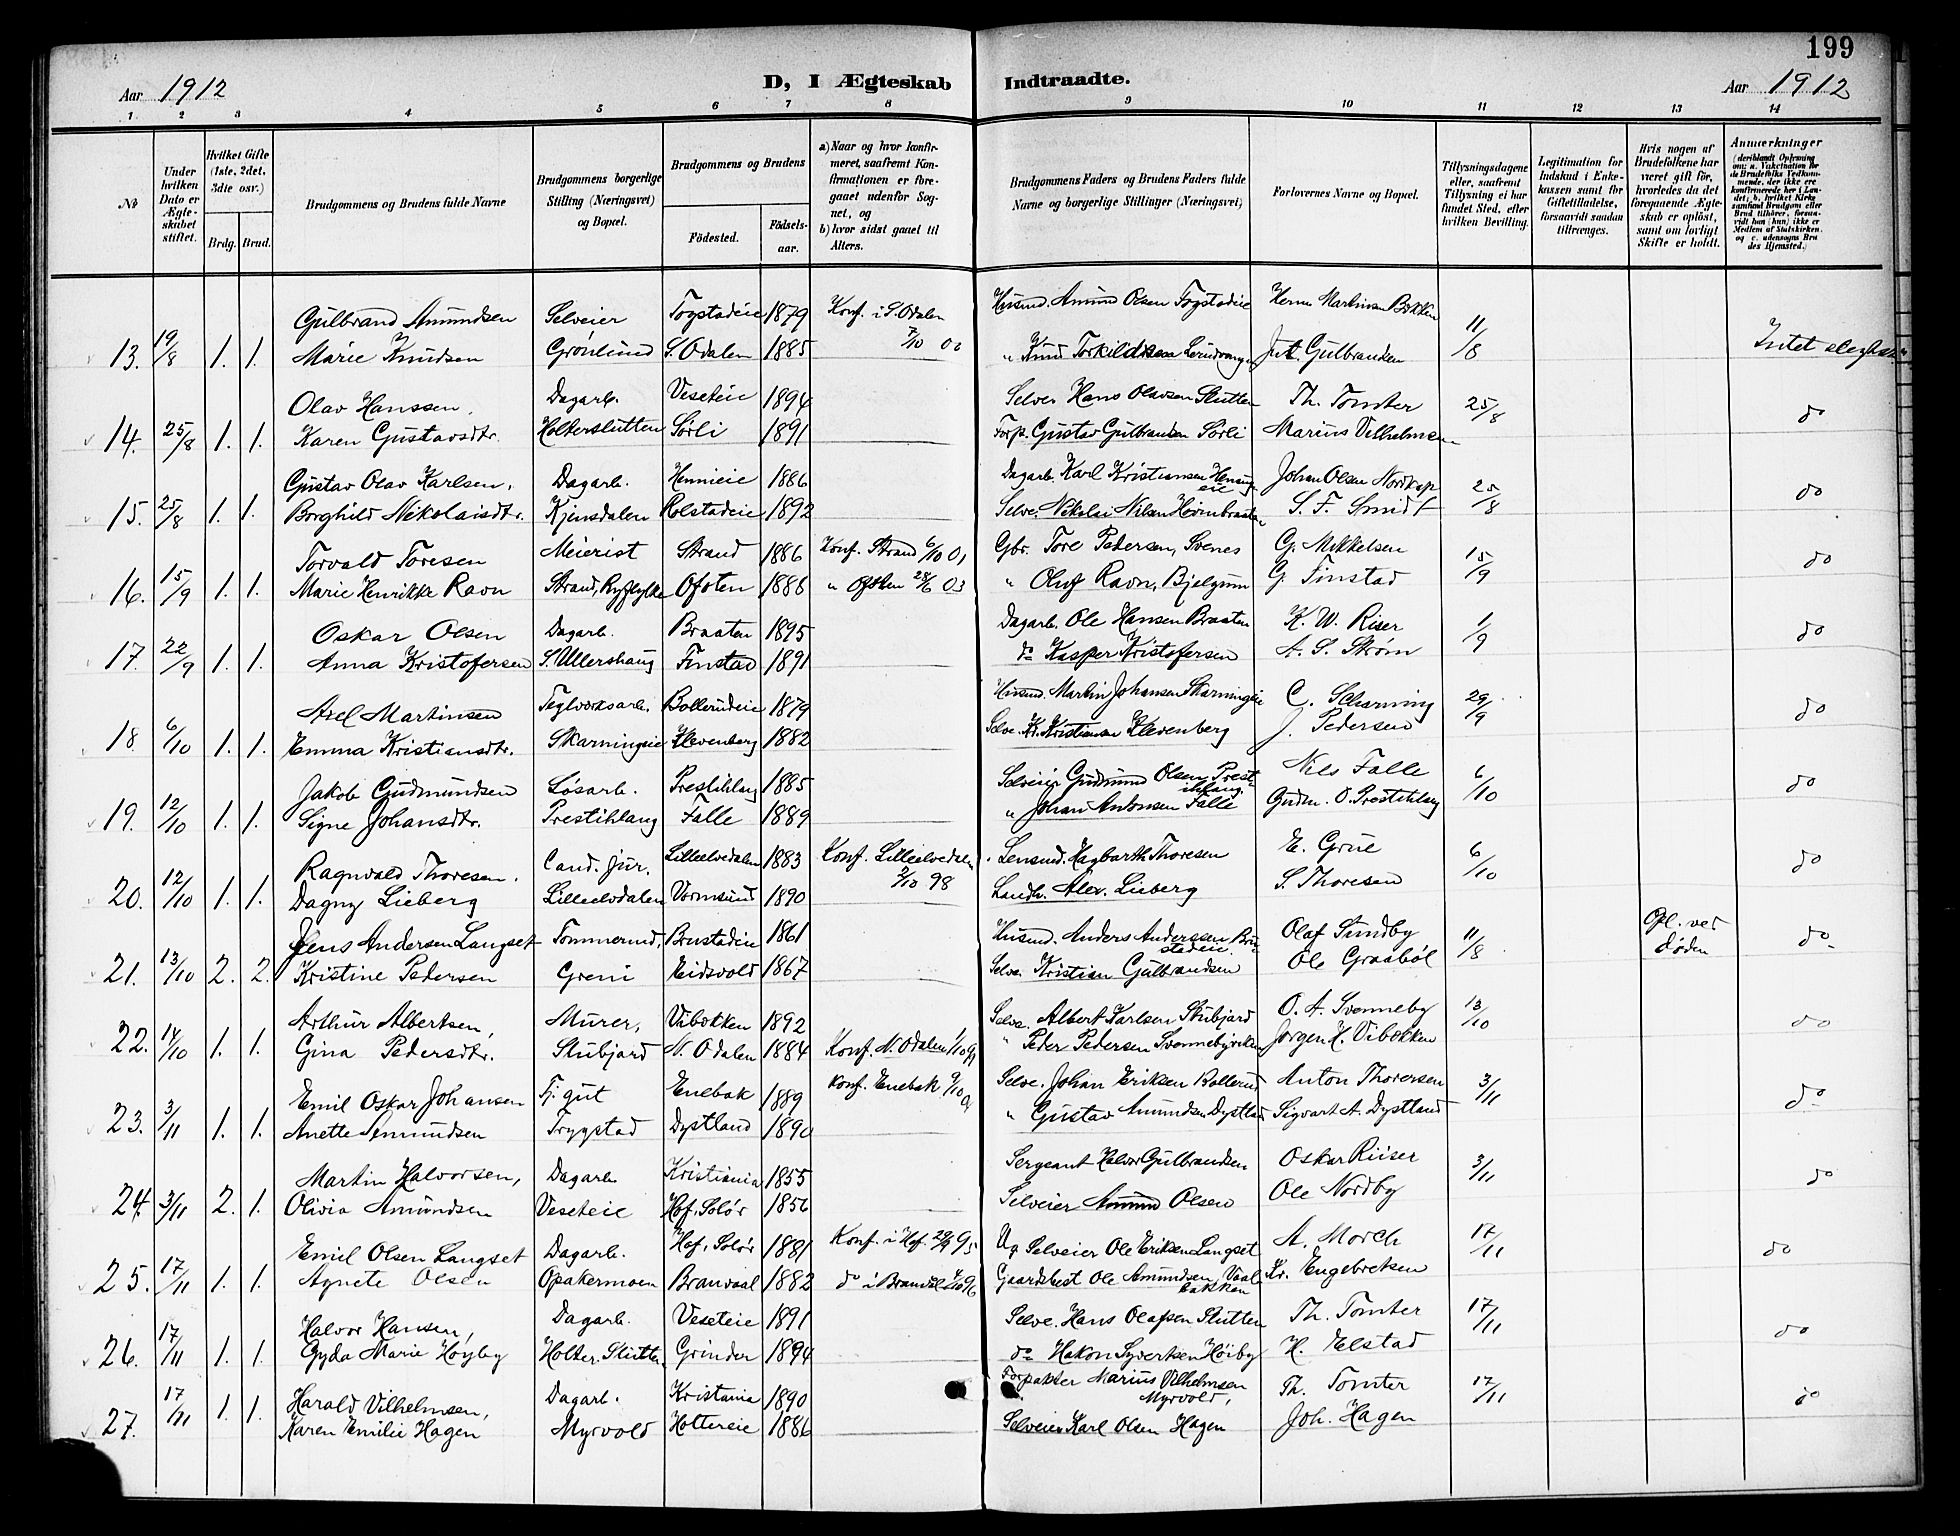 199
Aar 1912
D, I Ægteskab Indtraadte.
Aar 1912
1 2 3 4 5 6 7 8 9 10 11 12 13 14
No
Under hvilken Dato er Ægteskabet stiftet.
Hvilket Gifte (1ste, 2det, 3die osv.)
Brdg. Brud.
Brudgommens og Brudens fulde Navne
Brudgommens borgerlige Stilling (Næringsvei) og Bopæl.
Brudgommens og Brudens
Fødested.
Fødselsaar.
a) Naar og hvor konfirmeret, saafremt Konfirmationen er foregaaet udenfor Sognet, og
b) hvor sidst gaaet til Alters.
Brudgommens Faders og Brudens Faders fulde Navne og borgerlige Stillinger (Næringsvei)
Forlovernes Navne og Bopæl.
Tillysningsdagene eller, saafremt Tillysning ei har fundet Sted, efter hvilken Bevilling.
Legitimation for Indskud i Enkekassen samt for Giftetilladelse, forsaavidt saadan tiltrænges.
Hvis nogen af Brudefolkene har været gift før, hvorledes da det foregaaende Ægteskab er opløst, samt om lovligt Skifte er holdt.
Anmærkninger
Gulbrand Amundsen Selveier Togstadeie 1879 Konf. i S. Odalen Husmd. Amund Olsen Togstadeie Herm Martinsen Bekken
13. 19/8 1. 1. Marie Knudsen Grønlund S. Odalen 1885 7/10 00 " Knud Torkildsen Gulbrandsen 11/8 Intet
Olav Hanssen. Dagarb. Veseteie 1894 Selveier Hans Olavsen Slutten Th. Tomter
14. 25/8 1. 1. Karen Gustavsdtr. Holterslutten Sørli 1891 Forp. Gustav Gulbrandsen Sørli Marius Vilhelmsen 25/8 do
Gustav Olav Karlsen. Dagarb. Hennieie 1886 Dagarb. Karl Kristiansen Hennieie Johan Olsen Nordkap
15. 25/8 1. 1. Borghild Nikolaisdtr. Kjensdalen Rolstadeie 1892 Selve. Nikolai Nilsen Høienbraaten S. F. Smidt 25/8 do
Torvald Toresen Meierist Strand 1886 Konf. Strand 6/10 01 Gbr. Tore Pedersen, Svenes G. Mikkelsen
16. 15/9 1. 1. Marie Henrikke Ravn Strand, Ryfylke Ofoten 1888 " Ofoten 28/6 03 " Oluf Ravn, Bjelgum G. Finstad 15/9 do
Oskar Olsen Dagarb. Braaten 1895 Dagarb. Ole Hansen Braaten K. W. Riser
17. 22/9 1. 1. Anna Kristofersen S. Ullershaug Finstad 1891 do Kasper Kristofersen A. S. Strøm 1/9 do
Axel Martinsen Teglverksarb. Bollerudeie 1879 Husmd. Martin Johansen Skarningeie C. Scharning
18. 6/10 1. 1. Emma Kristiansdtr. Skarningeie Klevenberg 1882 Selve. Kr. Kristiansen Klevenberg J. Pedersen 29/9 do
Jakob Gudmundsen Løsarb. Prestihlang 1885 Selveier Gudmund Olsen Prestihlang Nils Falle
19. 12/10 1. 1. Signe Johansdtr. Prestihlang Falle 1889 " Johan Antonsen Falle Gudm. O. Prestihlang 6/10 do
Ragnvald Thoresen. Cand. jur. Lilleelvedalen 1883 Konf. Lilleelvedalen Lensmd. Hagbarth Thoresen E. Grue
20. 12/10 1. 1. Dagny Lieberg Lilleelvdalen Vormsund 1890 2/10 98 Landh. Alex. Lieberg S. Thoresen 6/10 do
Jens Andersen Langset Tømmermd, Brustadeie 1861 Husmd. Anders Anderssen Brustadeie Olaf Sundby Opl. ved
21. 13/10 2. 2. Kristine Pedersen Greni Eidsvold 1867 Selve. Kristian Gulbrandsen Ole Graabøl 11/8 døden do.
Arthur Albertsen, Murer, Vibekken 1892 Selve. Albert Karlsen Stubjard O. A. Svenneby
22. 14/10 1. 1. Gina Pedersdtr. Stubjard N. Odalen 1884 Konf. N. Odalen 1/10 99 " Peder Pedersen Svennebyviken Jørgen H. Vibekken 13/10 do
Emil Oskar Johansen Tj. gut Enebak 1889 Konf. Enebak 9/10 04 Selve. Johan Eriksen Bollerud Anton Thoresen
23. 3/11 1. 1. Anette Amundsen Trygstad Dystland 1890 " Gustav Amundsen Dystland Sigvart A. Dystland 3/11 do
Martin Halvorsen, Dagarb. Kristiania 1855 Sergeant Halvor Gulbrandsen Oskar Riiser
24. 3/11 2. 1. Olivia Amundsen Veseteie Hof, Solør 1856 Selveier Amund Olsen Ole Nordby 3/11 do
Emil Olsen Langset Dagarb. Hof, Solør 1881 Konf. i Hof. 29/9 95 Ug. Selveier Ole Eriksen Langset A. Morch
25. 17/11 1. 1. Agnete Olsen Opakermoen Branvaal 1882 do i Branvål 4/10 96 Gaardbest Ole Amundsen, Vaalbakken Kr. Engebretsen 17/11 do
Halvor Hansen, Dagarb. Veseteie 1891 Selve. Hans Olafsen Slutten Th. Tomter
26. 17/11 1. 1. Gyda Marie Høyby Holter. Slutten Grinder 1894 do Hakon Syvertsen Høiby H. Elstad 17/11 do
Harald Vilhelmsen, Dagarb. Kristania 1890 Forpakter Marius Vilhelmsen Myrvold, Th. Tomter
27. 17/11 1. 1. Karen Emilie Hagen Myrvold Holtereie 1886 Selveier Karl Olsen Hagen Joh. Hagen 17/11 do